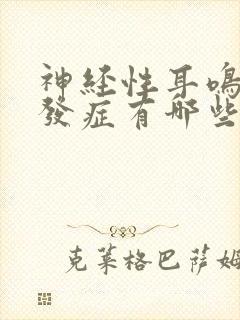 神经性耳鸣
發症有哪些
克莱格巴萨姆